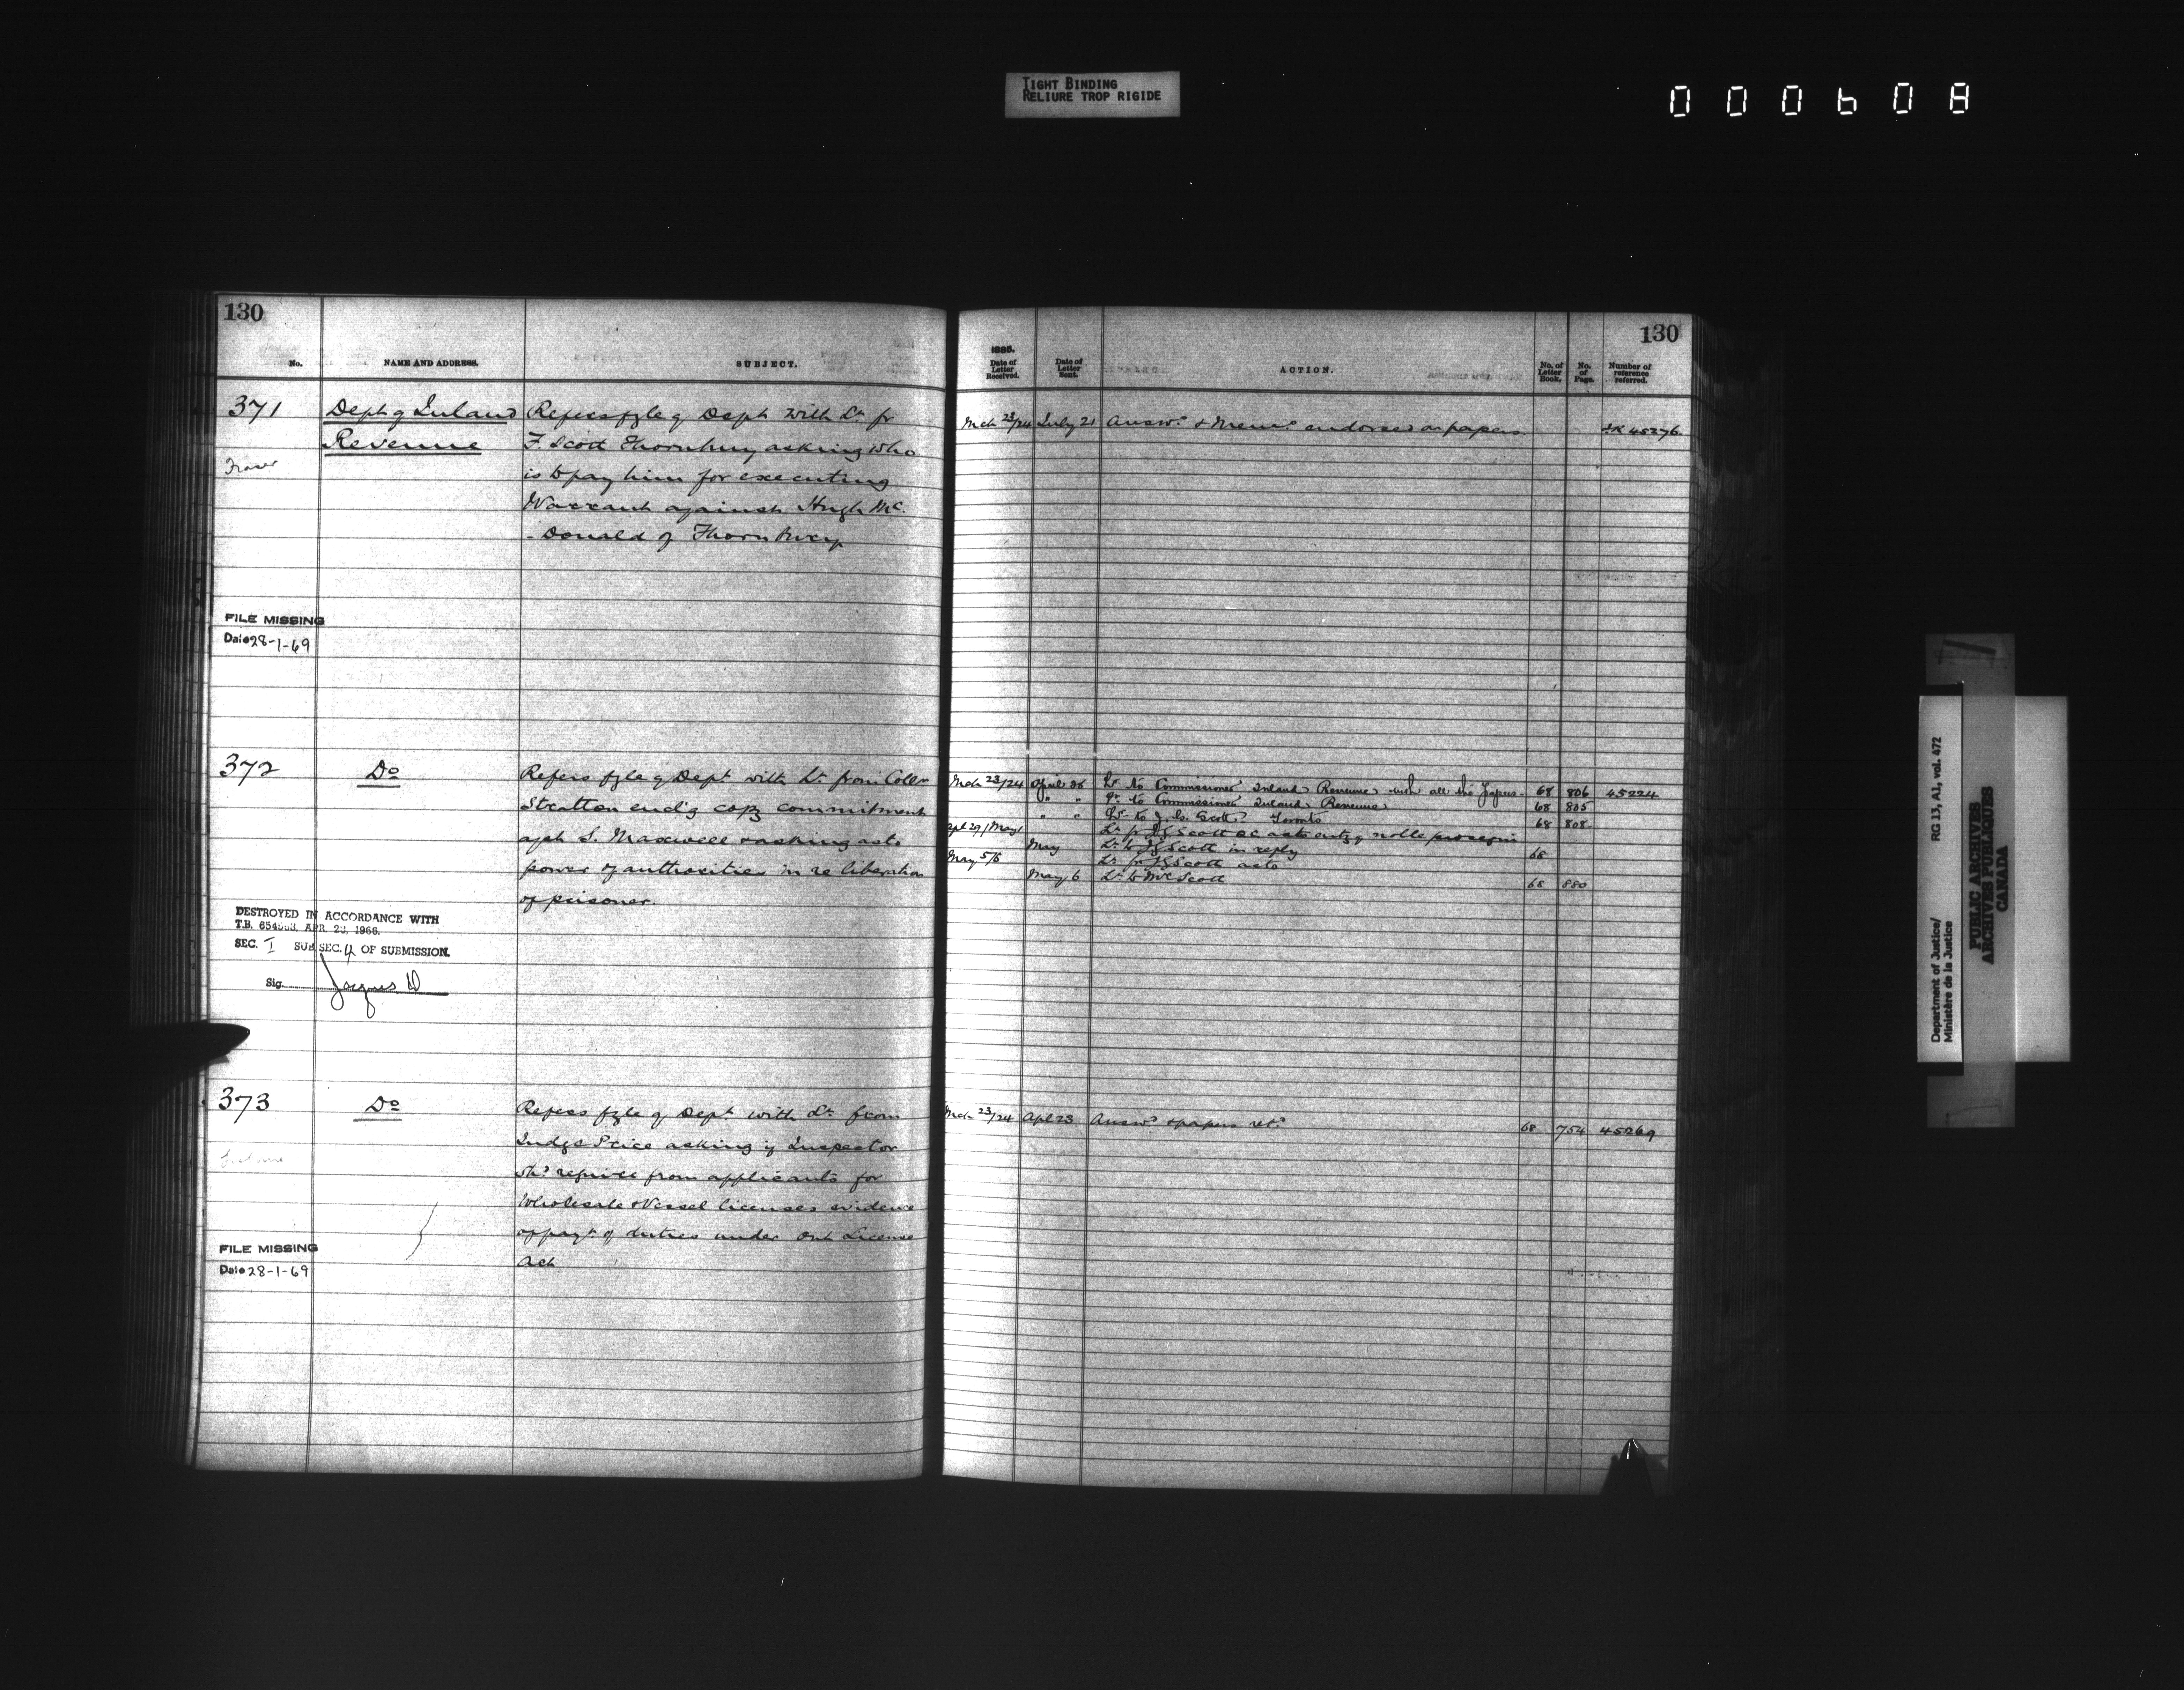 TIGHT BINDING
RELIURE TROP RIGIDE
000608
130
No.
NAME AND ADDRESS.
SUBJECT.
371
Dept of Inland
Revenue
Refers fyle of Dept with Lr fr
F. Scott Thornbury asking who
is to pay him for executing
Warrant against Hugh Mc
-Donald of Thornbury
FILE MISSING
Date 28-1-69
372
Do
Refers fyle of Dept with Lr from Collr
Stratton encl'g copy commitment
agst S. Maxwell & asking as to
power of authorities in re liberation
of prisoner.
DESTROYED IN ACCORDANCE WITH
T.B. 654563, APR. 23, 1966.
SEC. I SUB SEC. 4 OF SUBMISSION.
Sig. Jacques D
373
Do
Refers fyle of Dept with Lr from
Judge Price asking if Inspector
shd require from applicants for
Wholesale & Vessel licenses evidence
of payt of duties under Ont License
Act
FILE MISSING
Date 28-1-69
130
1885.
Date of Letter Received.
Date of Letter Sent.
ACTION.
No. of Letter Book.
No. of Page.
Number of reference referred.
Mch 23/24 July 21 Answd & Memo endorsed on papers 45276
Mch 23/24 April Lr to Commissioner Inland Revenue with all the papers 68 806 45224
" " Lr to Commissioner Inland Revenue 68 805
" " Lr to J. G. Scott Toronto 68 808
Apl 29/May 1 Lr fr J G Scott QC as to entry nolle prosequi
May Lr to J G Scott in reply 68
May 5/5 Lr fr J G Scott as to
May 6 Lr to Mr Scott 68 880
Mch 23/24 Apl 23 Answd & papers retd 68 754 45269
Department of Justice/ RG 13, A1, vol. 472
Ministère de la Justice
PUBLIC ARCHIVES
ARCHIVES PUBLIQUES
CANADA